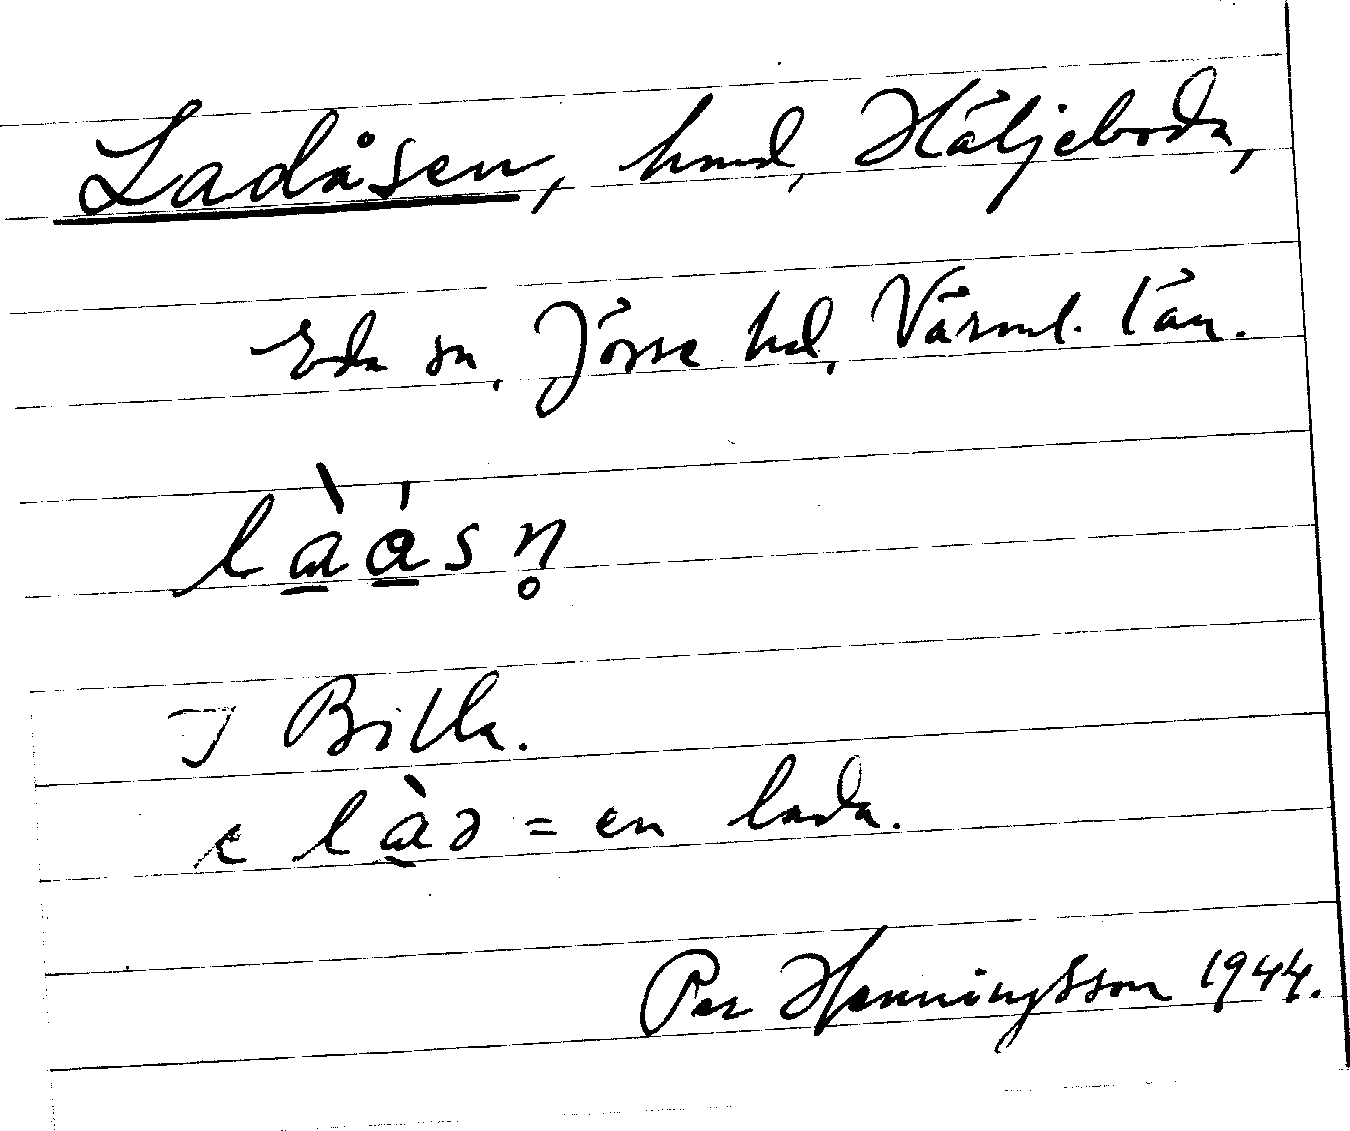 Ladåsen, hmd, Häljeboda,
Eda sn, Jösse hd, Värml. län.
làa̍sn̥
I Billa.
e làə = en lada.
Per Henningsson 1944.